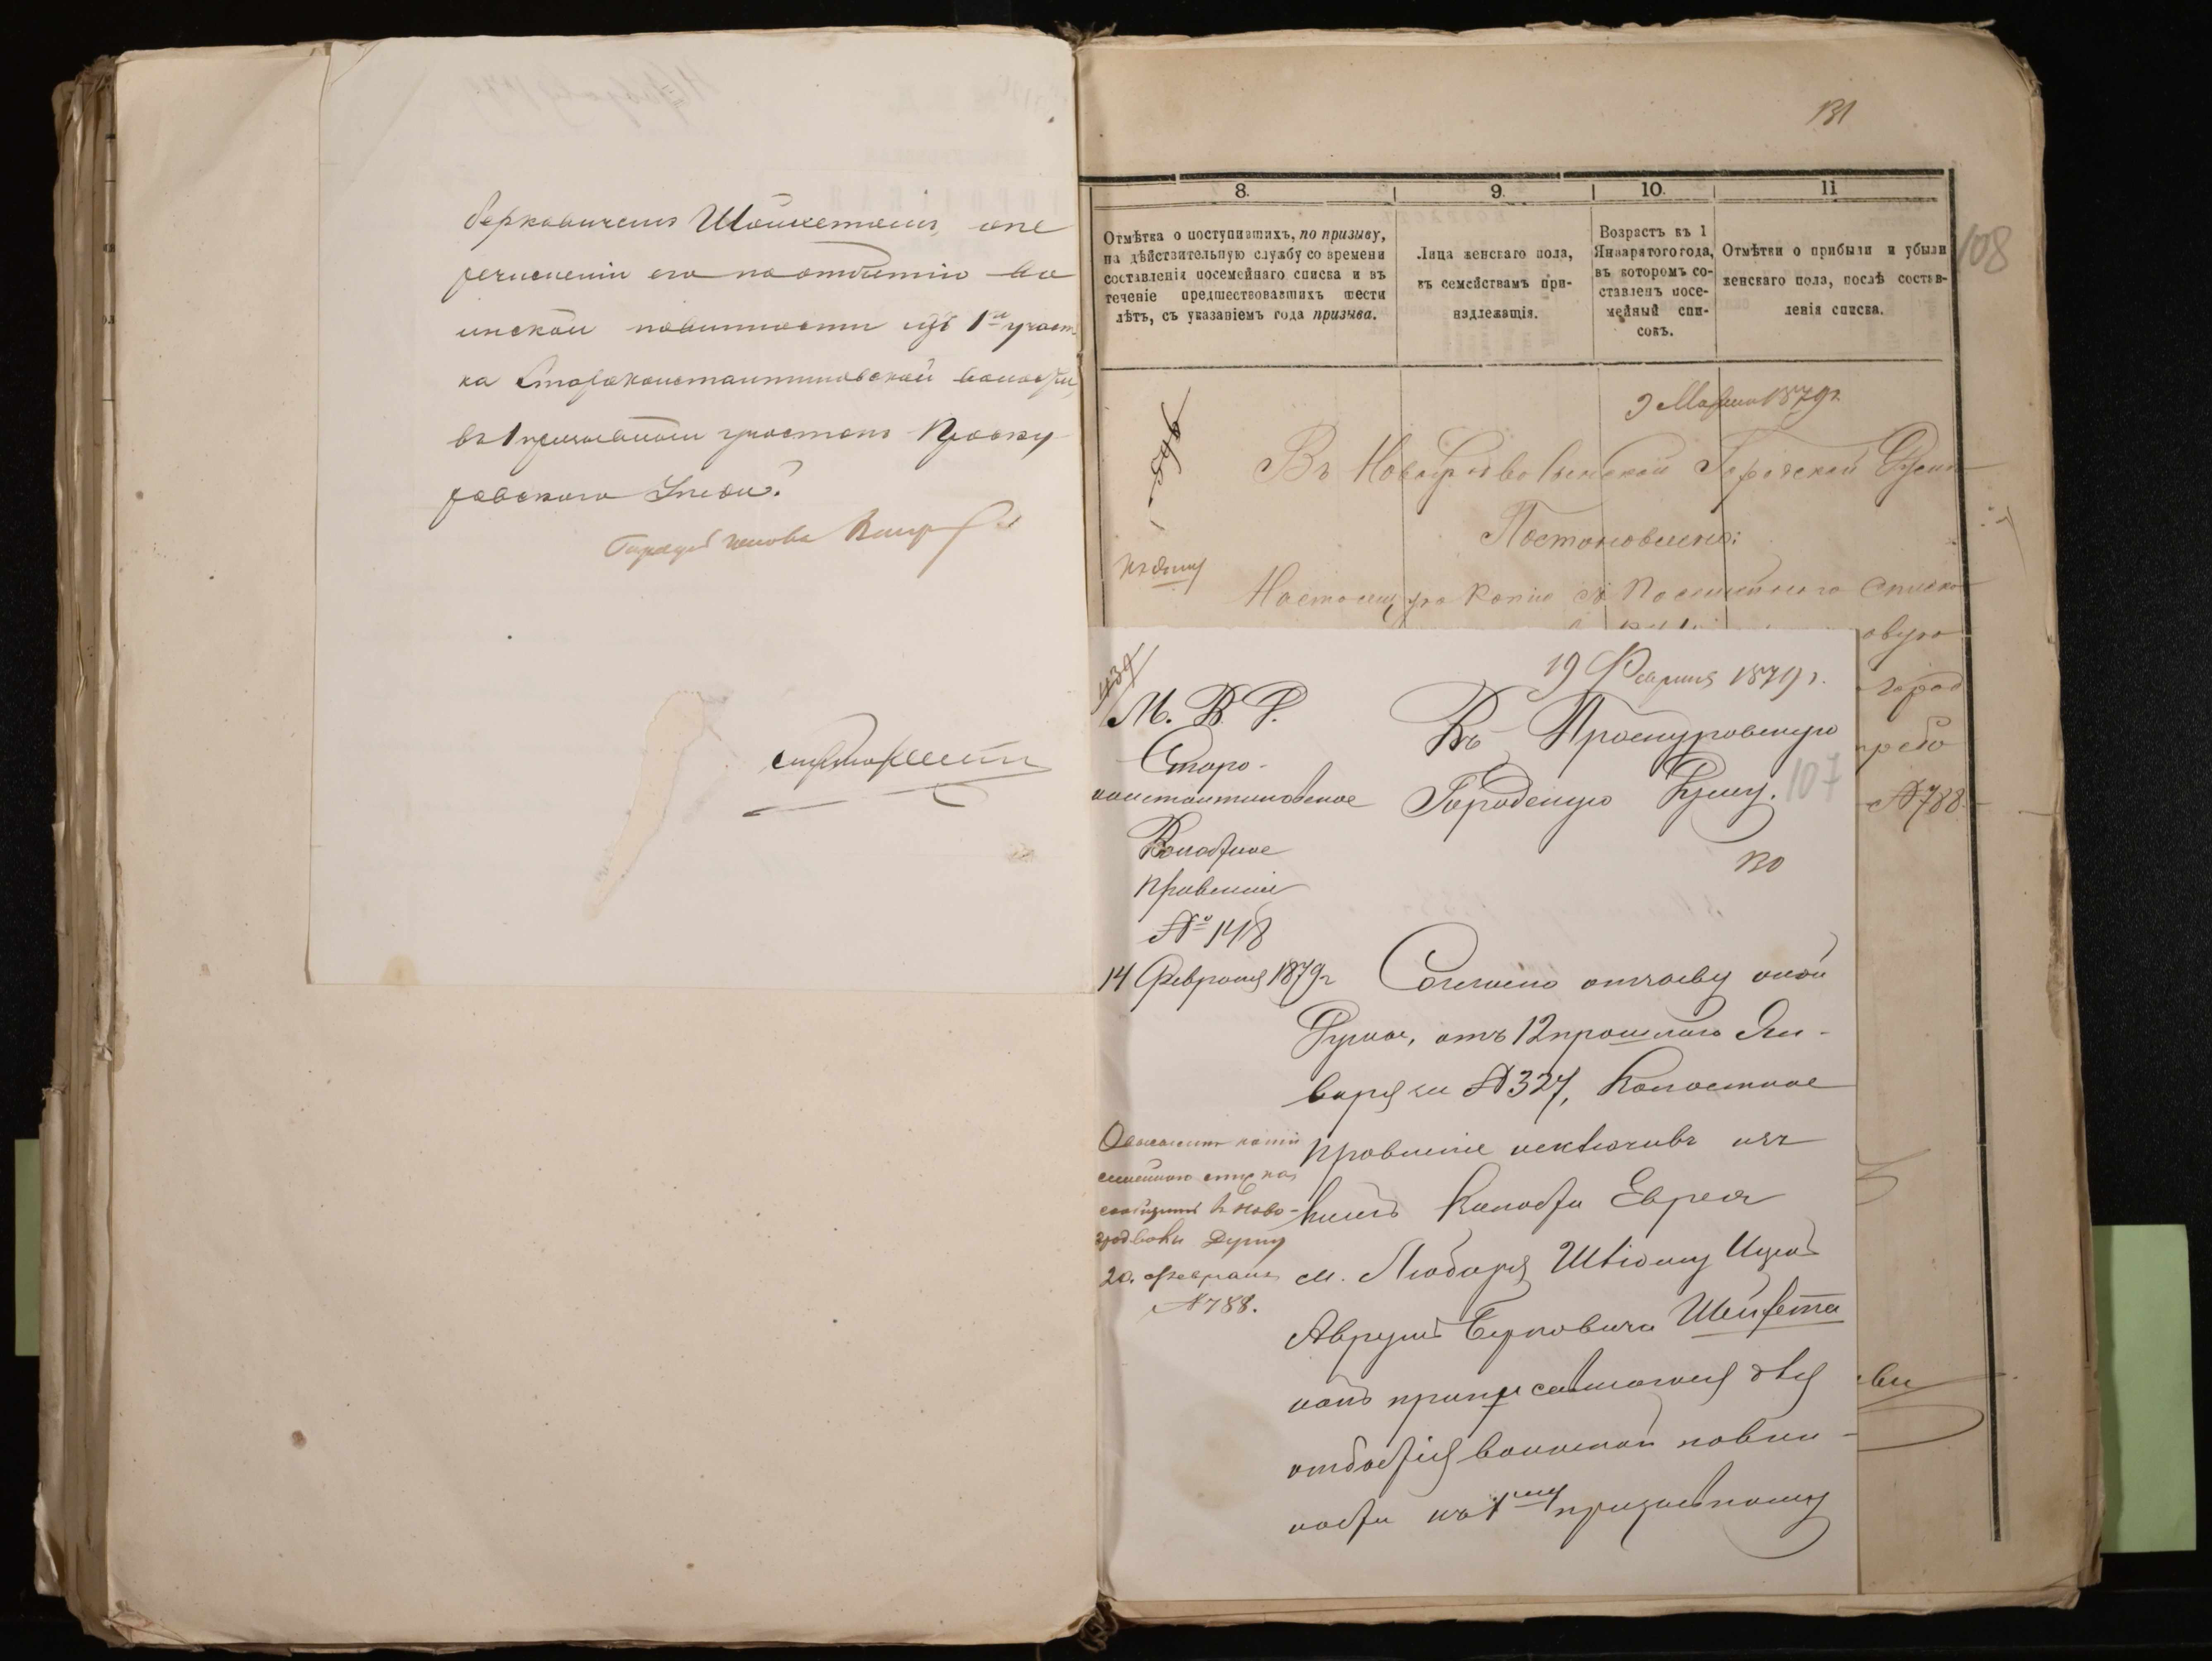 Берковичемъ Шойхетомъ, опе
речисленіи его по отбытію во
инской повинности изъ 1го участ
ка Староконстантиновской волости,
въ 1 призывной участокъ Проску
ровскаго уѣзда.
Городской голова
Секретарь
131
108
8.
9.
10.
11
Отмѣтка о поступившихъ, по призыву,
на дѣйствительную службу со времени
составленія посемейнаго списка и въ
теченіе предшествовавшихъ шести
лѣтъ, съ указаніемъ года призыва.
Лица женскаго пола,
къ семействамъ при-
надлежащія.
Возрастъ къ 1
Января того года,
въ которомъ со-
ставленъ посе-
мейный спи-
сокъ.
Отмѣтки о прибыли и убыли
женскаго пола, послѣ состав-
ленія списка.
9 Марта 1879г.
596
Въ Новоградволынской Городской Думѣ
Постановлено:
Настоящую копію съ Посемейнаго списка
овую
город
№788.
439
19 Февраля 1879 г.
М. В. Д.
Старо-
константиновское
Волостное
Правленіе
№ 148
14 Февраля 1879г
Въ Проскуровскую
Городскую Думу.
107
130
Согласно отзыву оной
Думы, отъ 12 прошлаго Ян-
варя за №327, Волостное
Правленіе исключивъ изъ
Волости Еврея
м. Любаря Шлiому Ицка
Аврума Берковича Шейхета
какъ приписавшагося для
отбытія воинской повин-
ности къ 1му призывному
копію
семейнаго списка
сообщить въ Ново-
градволын Думу
20. Февраля
№788.